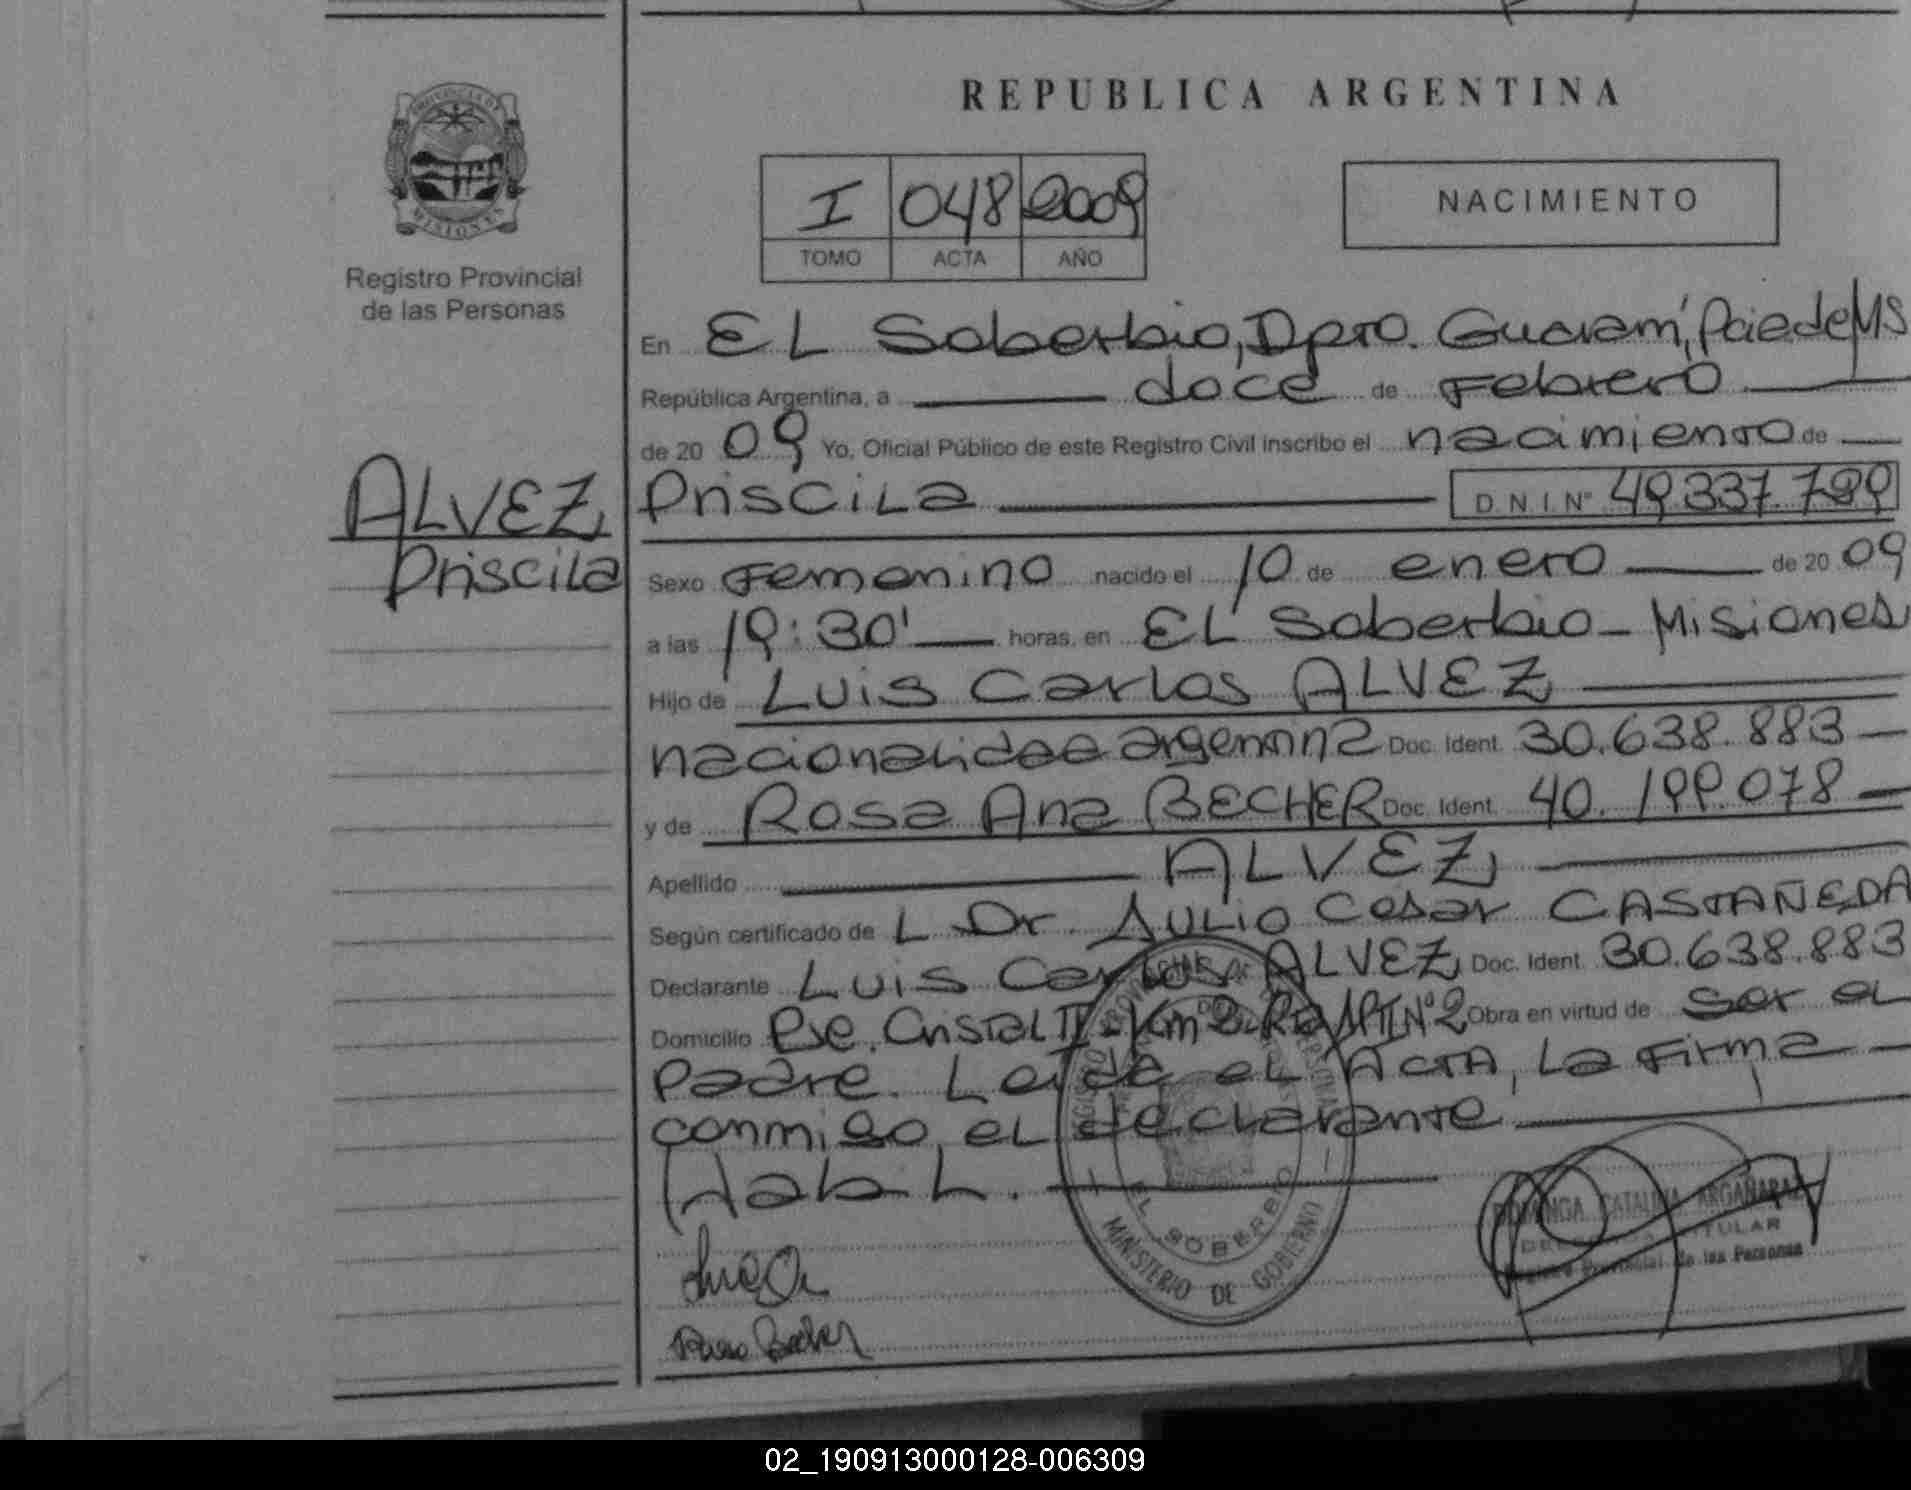 REPUBLICA ARGENTINA
PROVINCIA DE
MISIONES
Registro Provincial
de las Personas
I 048 2009
TOMO ACTA AÑO
NACIMIENTO
En EL Soberbio, Dpto. Guaraní, Pcia de MS
República Argentina, a doce de Febrero
de 20 09 Yo, Oficial Público de este Registro Civil inscribo el nacimiento de
ALVEZ
Priscila
Priscila D.N.I. N° 49.337.799
Sexo Femenino nacido el 10 de enero de 20 09
a las 19:30' horas, en EL Soberbio - Misiones
Hijo de Luis Carlos ALVEZ
nacionalidad argentina Doc. Ident. 30.638.883
y de Rosa Ana BECHER Doc. Ident. 40.199.078
Apellido ALVEZ
Según certificado de L Dr. Julio Cesar CASTAÑEDA
Declarante Luis Carlos ALVEZ Doc. Ident. 30.638.883
Domicilio Pje. Cristal II - Km 2 Obra en virtud de ser el
padre. Leida el Acta, la firma
conmigo, el declarante
Hab L.
EL SOBERBIO
MINISTERIO DE GOBIERNO
CATALINA ARGAÑARAZ
TITULAR
Registro Provincial de las Personas
Rosa Becher
02_190913000128-006309